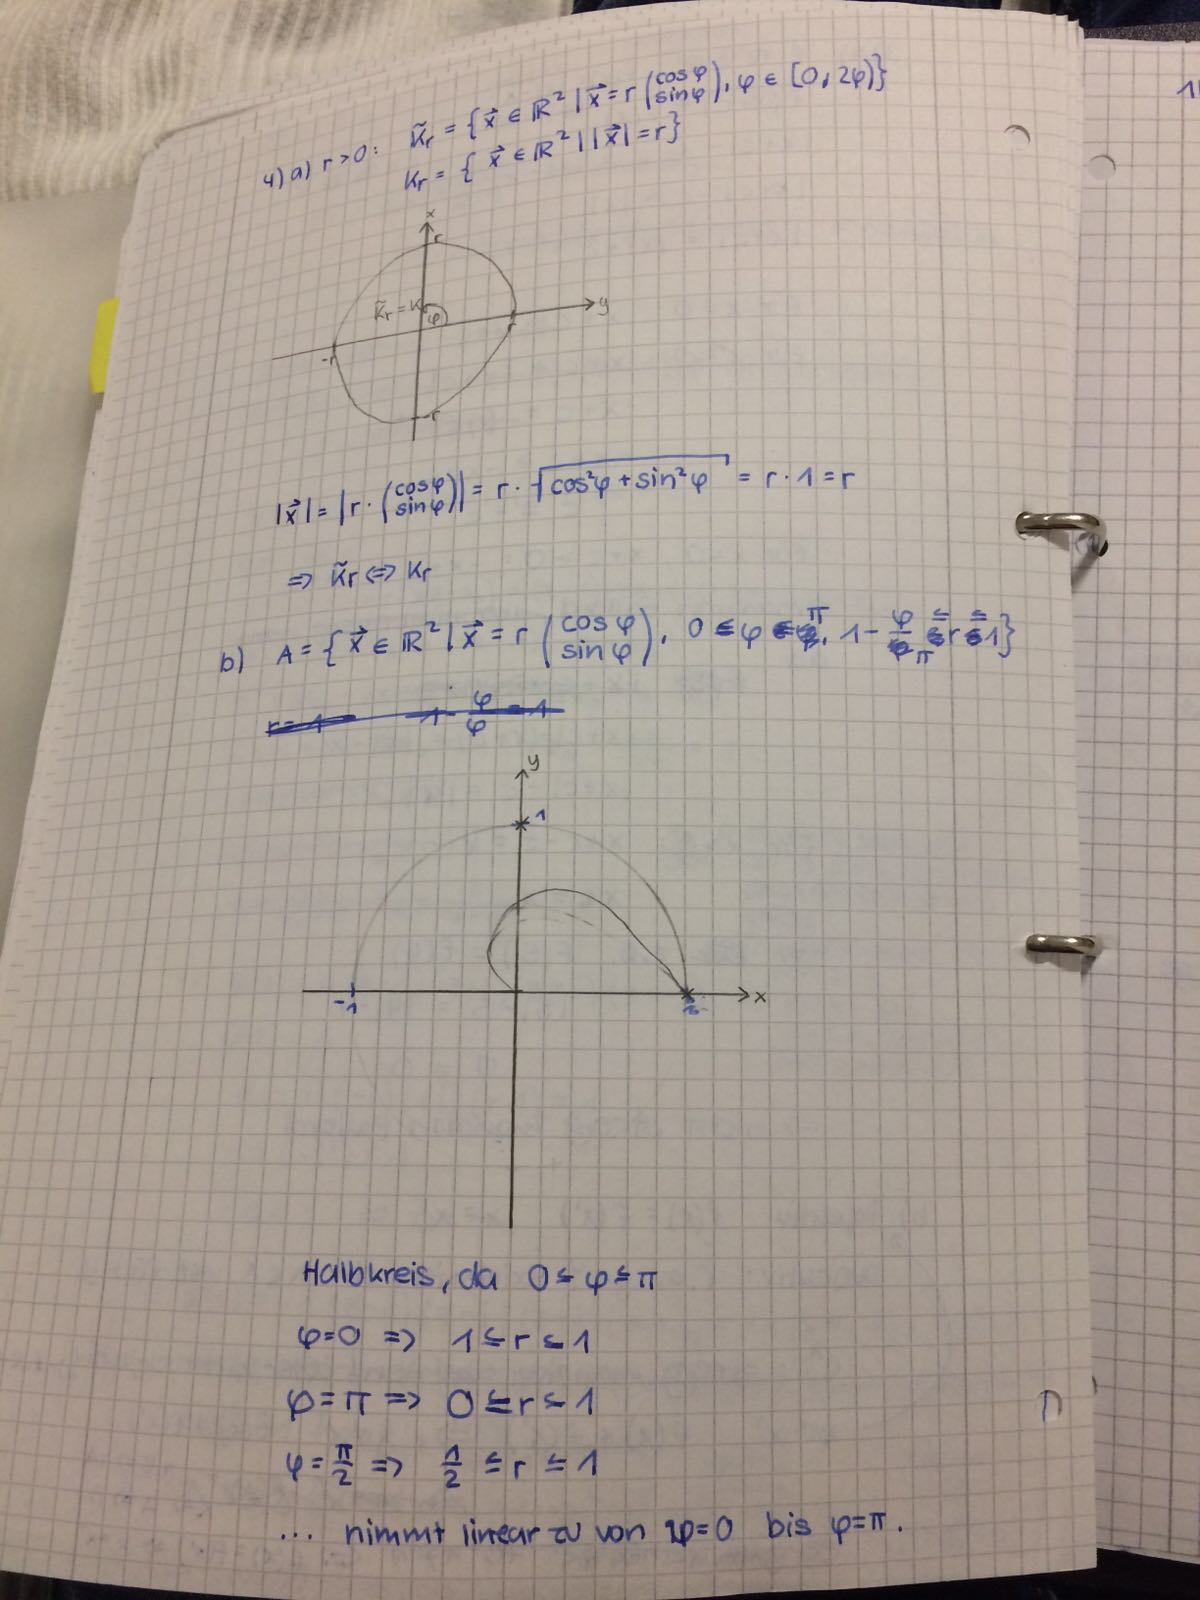 4) a) r > 0: K̃r = { x⃗ ∈ ℝ² | x⃗ = r (cosφ sinφ), φ ∈ [0, 2φ)}
Kr = { x⃗ ∈ ℝ² | |x⃗| = r }
x
r
K̃r = K
φ
y
-r
r
-r
|x⃗| = | r · (cosφ sinφ) | = r · √(cos²φ + sin²φ) = r · 1 = r
=> K̃r <=> Kr
b) A = { x⃗ ∈ ℝ² | x⃗ = r (cosφ sinφ), 0 ≤ φ ≤ π, 1 - φ/π ≤ r ≤ 1 }
r = 1 1 - φ/φ = 1
y
1
-1
x
Halbkreis, da 0 ≤ φ ≤ π
φ = 0 => 1 ≤ r ≤ 1
φ = π => 0 ≤ r ≤ 1
φ = π/2 => 1/2 ≤ r ≤ 1
... nimmt linear zu von φ=0 bis φ=π.